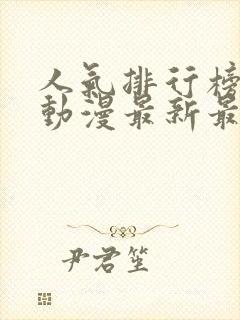 人氣排行榜
動漫最新最
尹君笙